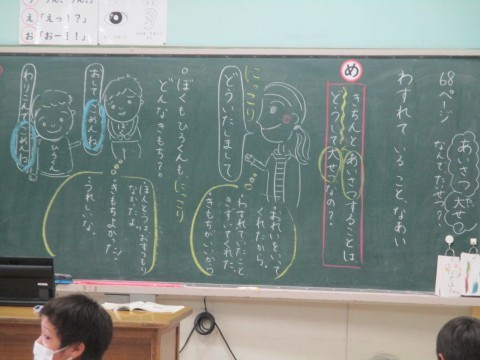 68ページ
わすれて いること、なあい
あいさつ大せつ
なんでだっけ?
め
きちんと、あいさつすることは、
どうして大せつなの?
おれいをいって
くれたから。
きもちがいい
どういたしまして
にっこり
ぼくもひろくんも、にっこり
どんなきもち?
ほんとうは、おすつもり
なかったよ
きもちよかったな
うれしいな。
おして
ごめんね
わりこんで
ごめんね
ひろく
え「えっ!?」
お「おー!!」